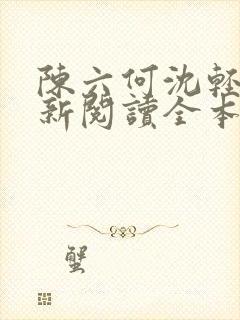 陳六何沈輕
新閱讀全本
蟹